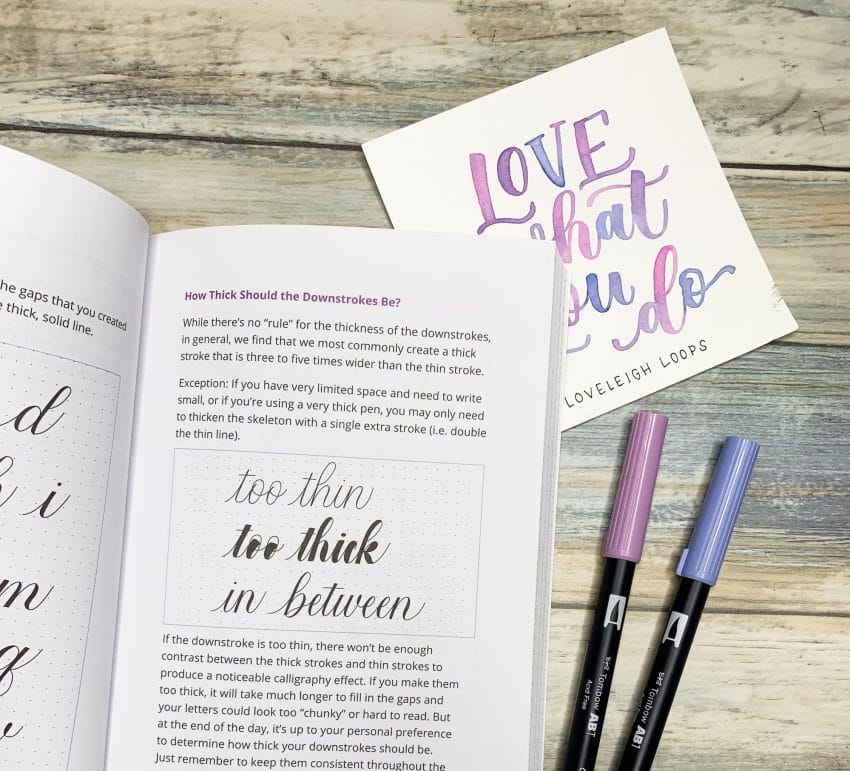 he gaps that you created
thick, solid line.
d
h i
m
How Thick Should the Downstrokes Be?
While there's no “rule” for the thickness of the downstrokes,
in general, we find that we most commonly create a thick
stroke that is three to five times wider than the thin stroke.
Exception: If you have very limited space and need to write
small, or if you're using a very thick pen, you may only need
to thicken the skeleton with a single extra stroke (i.e. double
the thin line).
too thin
too thick
in between
If the downstroke is too thin, there won't be enough
contrast between the thick strokes and thin strokes to
produce a noticeable calligraphy effect. If you make them
too thick, it will take much longer to fill in the gaps and
your letters could look too “chunky” or hard to read. But
at the end of the day, it's up to your personal preference
to determine how thick your downstrokes should be.
Just remember to keep them consistent throughout the
LOVE
what
you do
LOVELEIGH LOOPS
Tombow ABT
Acid Free
Tombow ABT